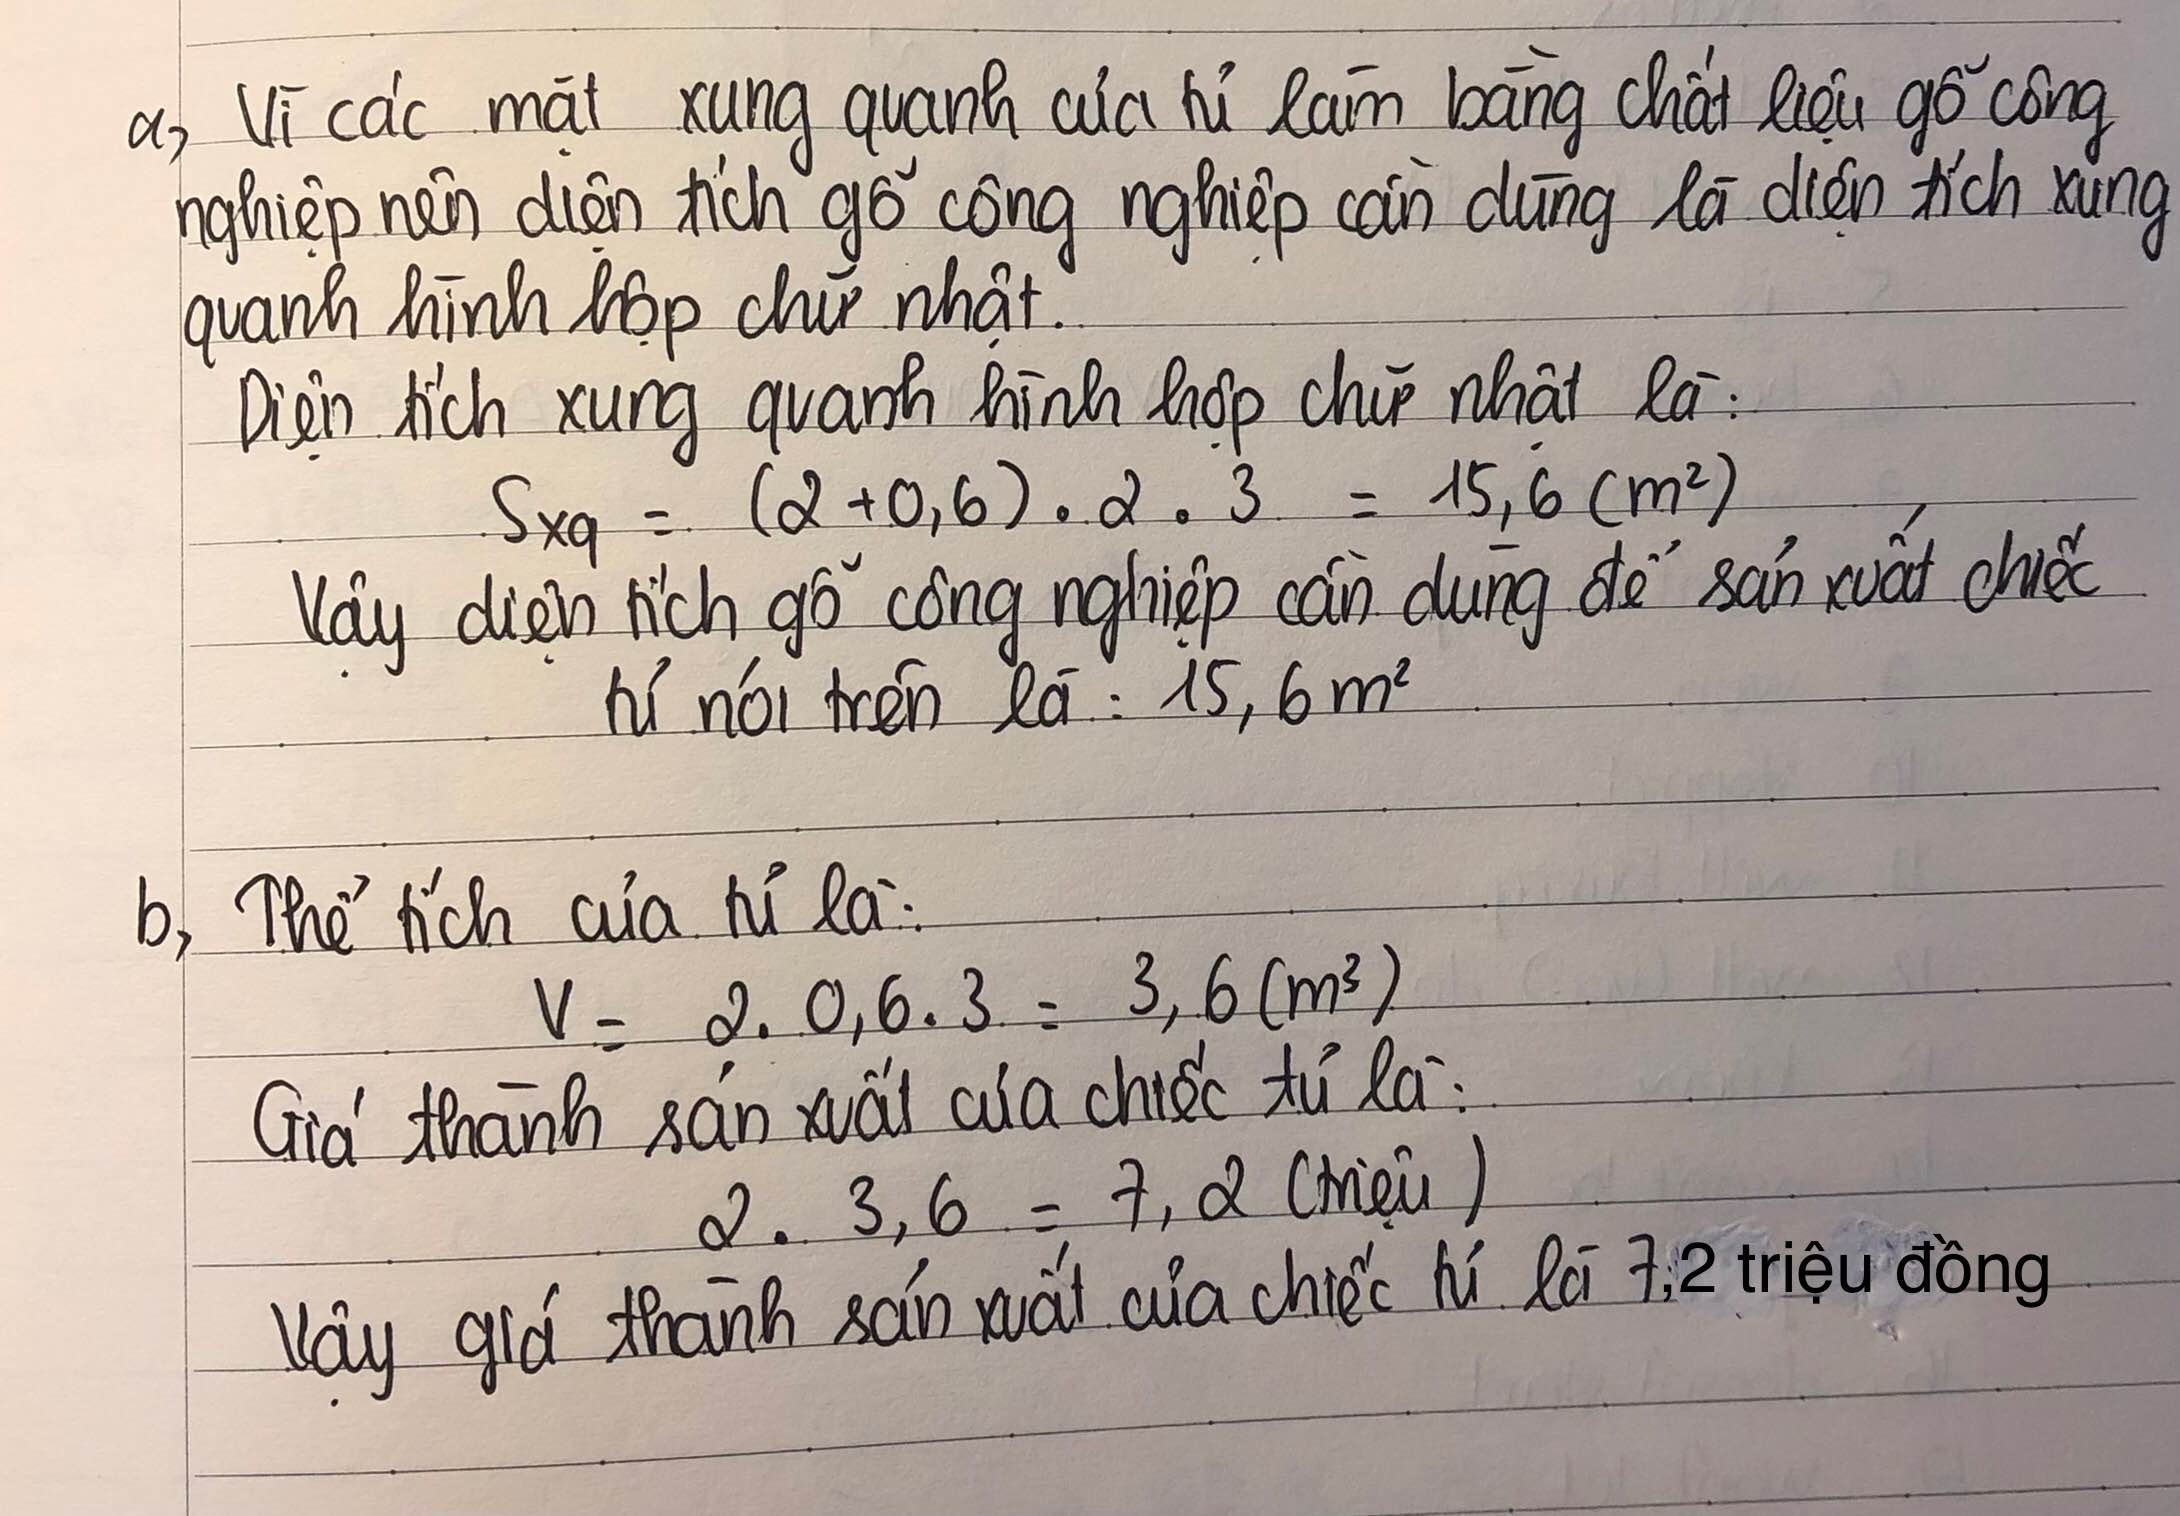 a, Vì các mặt xung quanh của tủ làm bằng chất liệu gỗ công
nghiệp nên diện tích gỗ công nghiệp cần dùng là diện tích xung
quanh hình hộp chữ nhật.
Diện tích xung quanh hình hộp chữ nhật là:
Sxq = (2 + 0,6) . 2 . 3 = 15,6 (m²)
Vậy diện tích gỗ công nghiệp cần dùng để sản xuất chiếc
tủ nói trên là : 15,6 m²
b, Thể tích của tủ là:
V = 2. 0,6. 3 = 3,6 (m³)
Giá thành sản xuất của chiếc tủ là:
2. 3,6 = 7,2 (triệu)
Vậy giá thành sản xuất của chiếc tủ là 7,2 triệu đồng